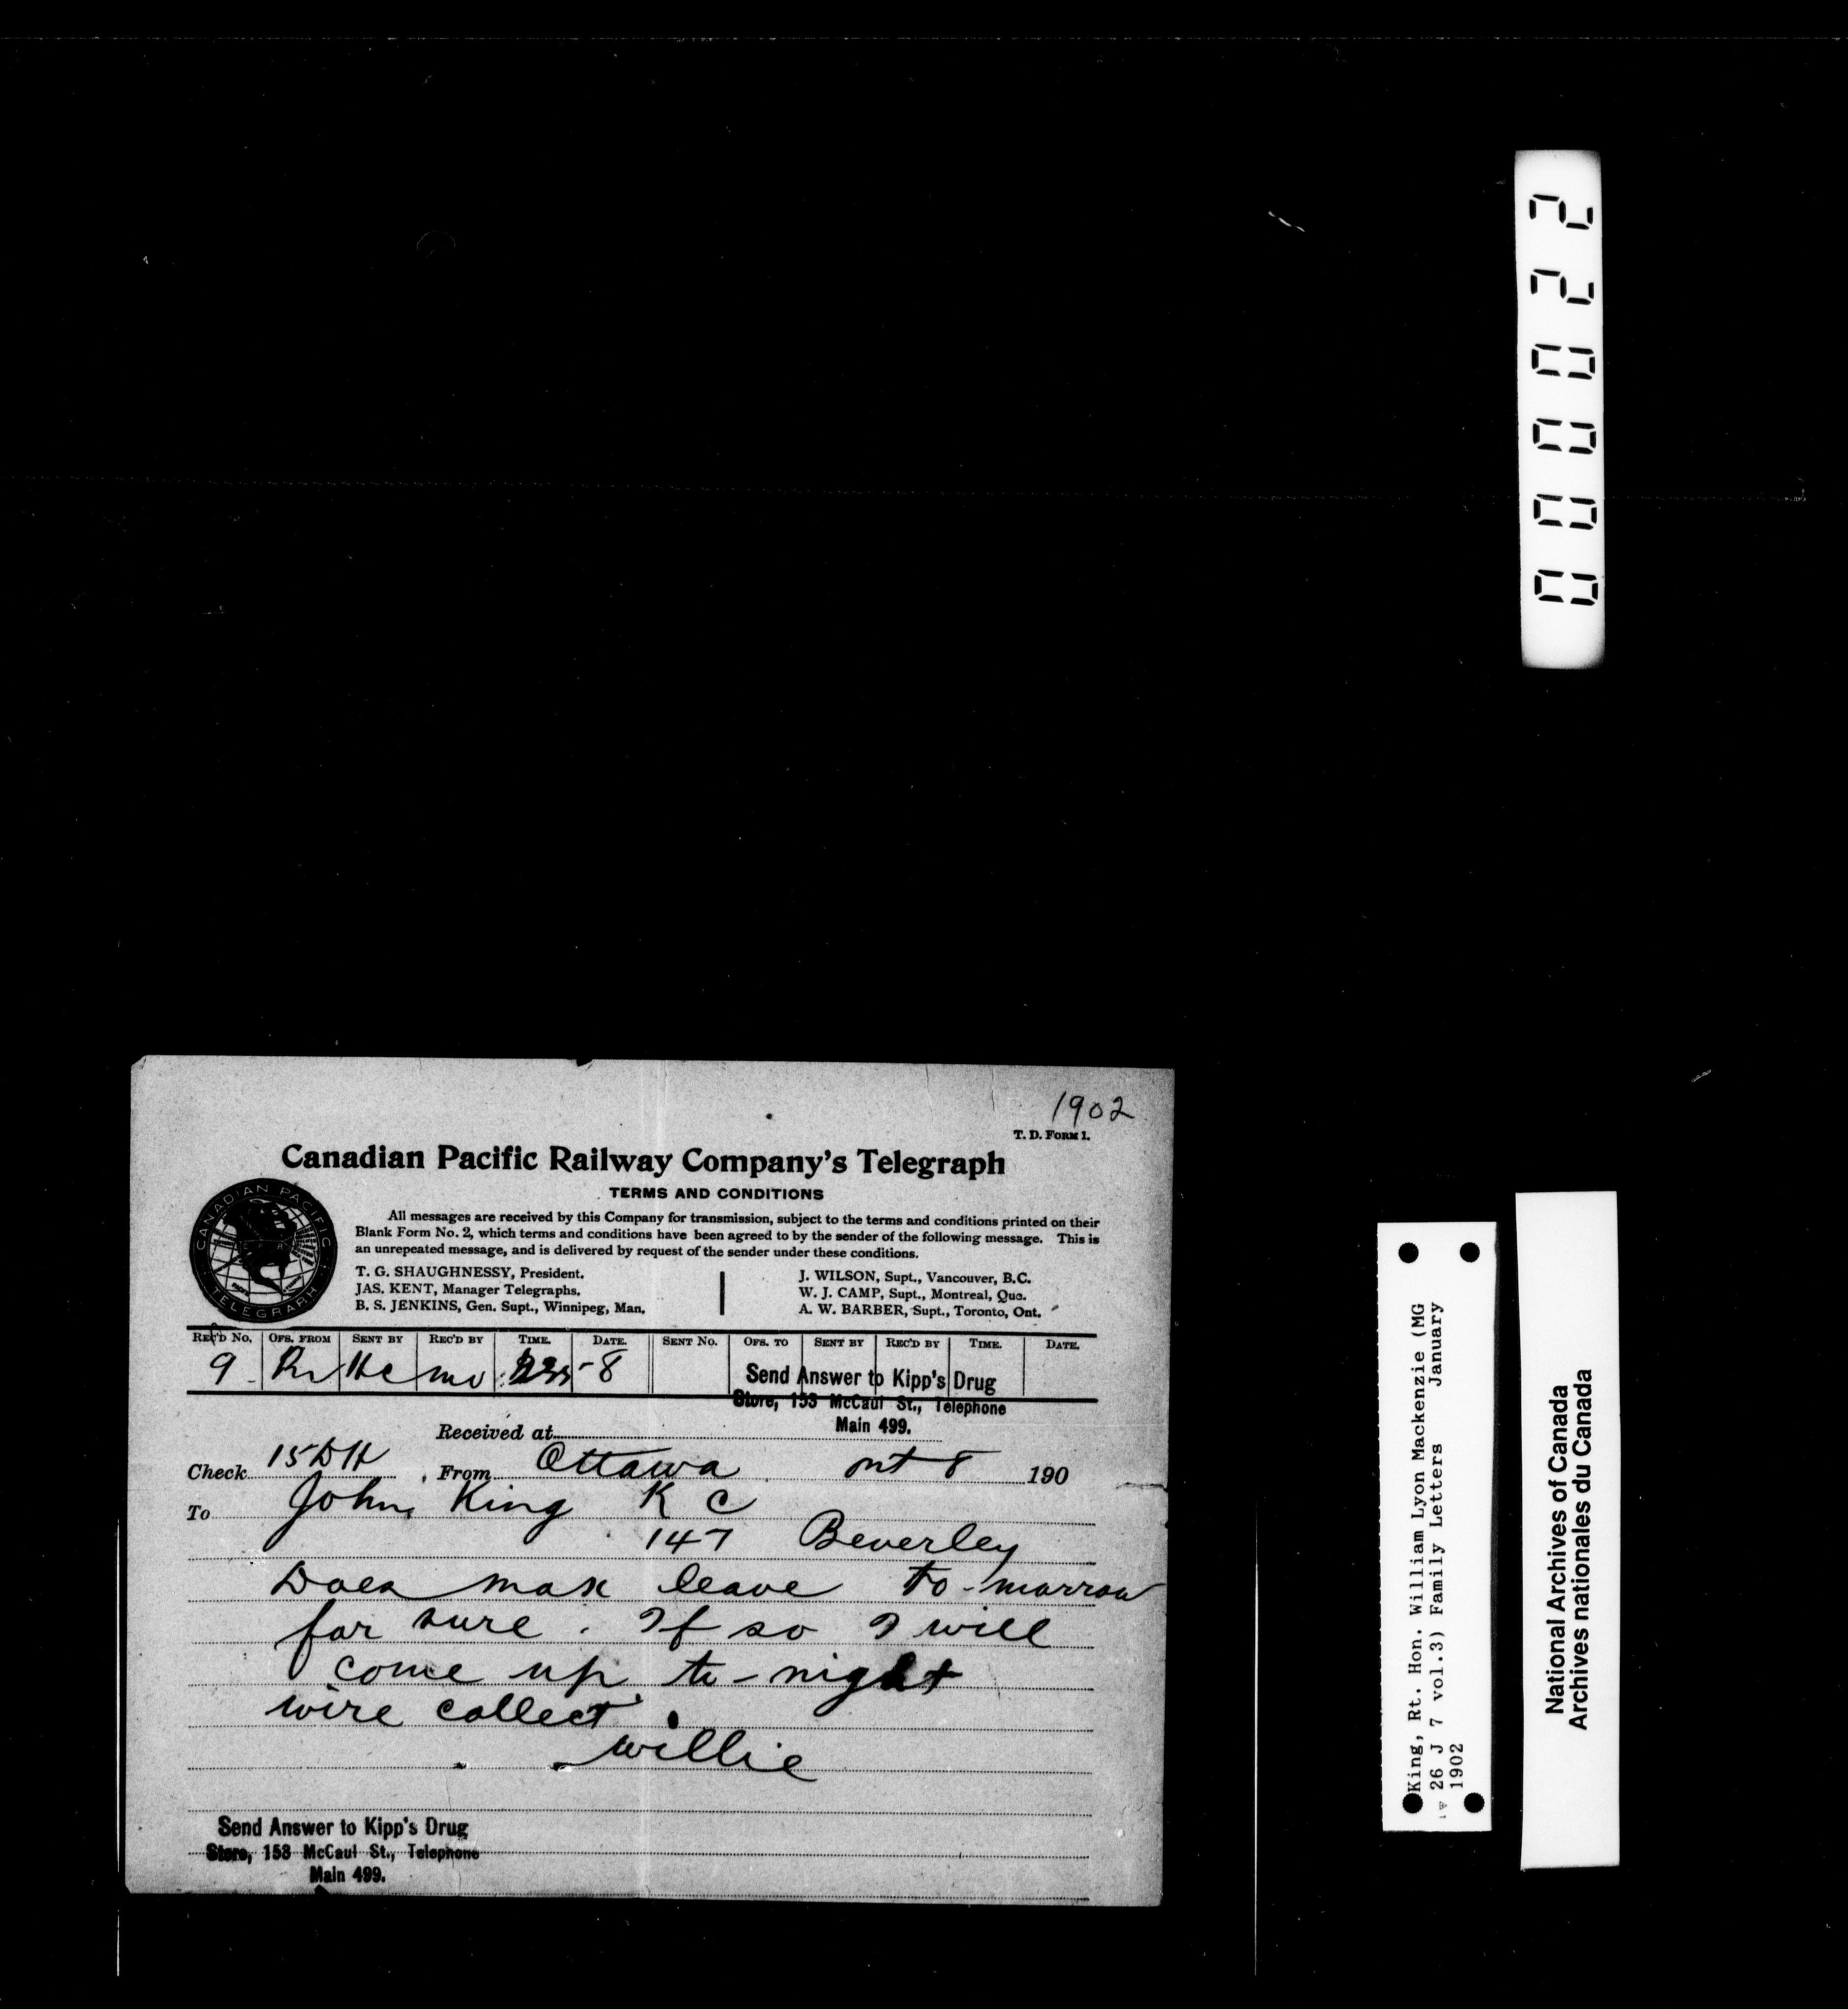 000022
1902
T. D. FORM 1.
Canadian Pacific Railway Company's Telegraph
TERMS AND CONDITIONS
CANADIAN PACIFIC
TELEGRAPH
All messages are received by this Company for transmission, subject to the terms and conditions printed on their
Blank Form No. 2, which terms and conditions have been agreed to by the sender of the following message. This is
an unrepeated message, and is delivered by request of the sender under these conditions.
T. G. SHAUGHNESSY, President.
JAS. KENT, Manager Telegraphs.
B. S. JENKINS, Gen. Supt., Winnipeg, Man.
J. WILSON, Supt., Vancouver, B.C.
W. J. CAMP, Supt., Montreal, Que.
A. W. BARBER, Supt., Toronto, Ont.
REC'D NO. OFS. FROM SENT BY REC'D BY TIME. DATE. SENT NO. OFS. TO SENT BY REC'D BY TIME. DATE.
9 Hc mo 8
Send Answer to Kipp's Drug
Store, 153 McCaul St., Telephone
Main 499.
Received at
Check 15 DH From Ottawa ont 8 190
To John King K C
147 Beverley
Does max leave to-morrow
for sure. If so I will
come up to-night
wire collect.
willie
Send Answer to Kipp's Drug
Store, 153 McCaul St., Telephone
Main 499.
King, Rt. Hon. William Lyon Mackenzie (MG
26 J 7 vol.3) Family Letters January
1902
National Archives of Canada
Archives nationales du Canada